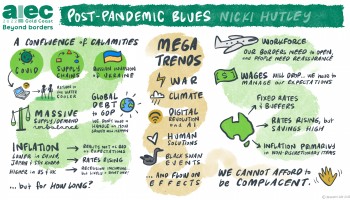 aiec
2022 Gold Coast
Beyond borders
POST-PANDEMIC BLUES NICKI HUTLEY
A CONFLUENCE OF CALAMITIES
COVID
SUPPLY CHAINS
RUSSIAN INVASION OF UKRAINE
RETURN TO THE WATER COOLER
MASSIVE
SUPPLY/DEMAND
IMBALANCE
GLOBAL DEBT to GDP
INFLATION
LOWER in CHINA,
JAPAN & STH KOREA
HIGHER in US & UK
REALITY NOT ALIGNED to EXPECTATIONS
RATES RISING
... but FOR HOW LONG?
MEGA TRENDS
WAR
CLIMATE
DIGITAL REVOLUTION and AI
HUMAN SOLUTIONS
BLACK SWAN EVENTS
... AND FLOW ON EFFECTS
WORKFORCE
OUR BORDERS NEED to OPEN,
and PEOPLE NEED REASSURANCE
WAGES WILL DROP... WE NEED to MANAGE OUR EXPECTATIONS
FIXED RATES & BUFFERS
RATES RISING, BUT SAVINGS HIGH
INFLATION PRIMARILY in NON-DISCRETIONARY ITEMS
WE CANNOT AFFORD to be COMPLACENT.